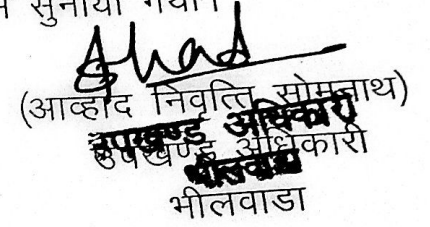 सुनाया गया।
(आव्हाद निवृत्ति सोमनाथ)
उपखण्ड अधिकारी
उपखण्ड अधिकारी
भीलवाडा
भीलवाडा